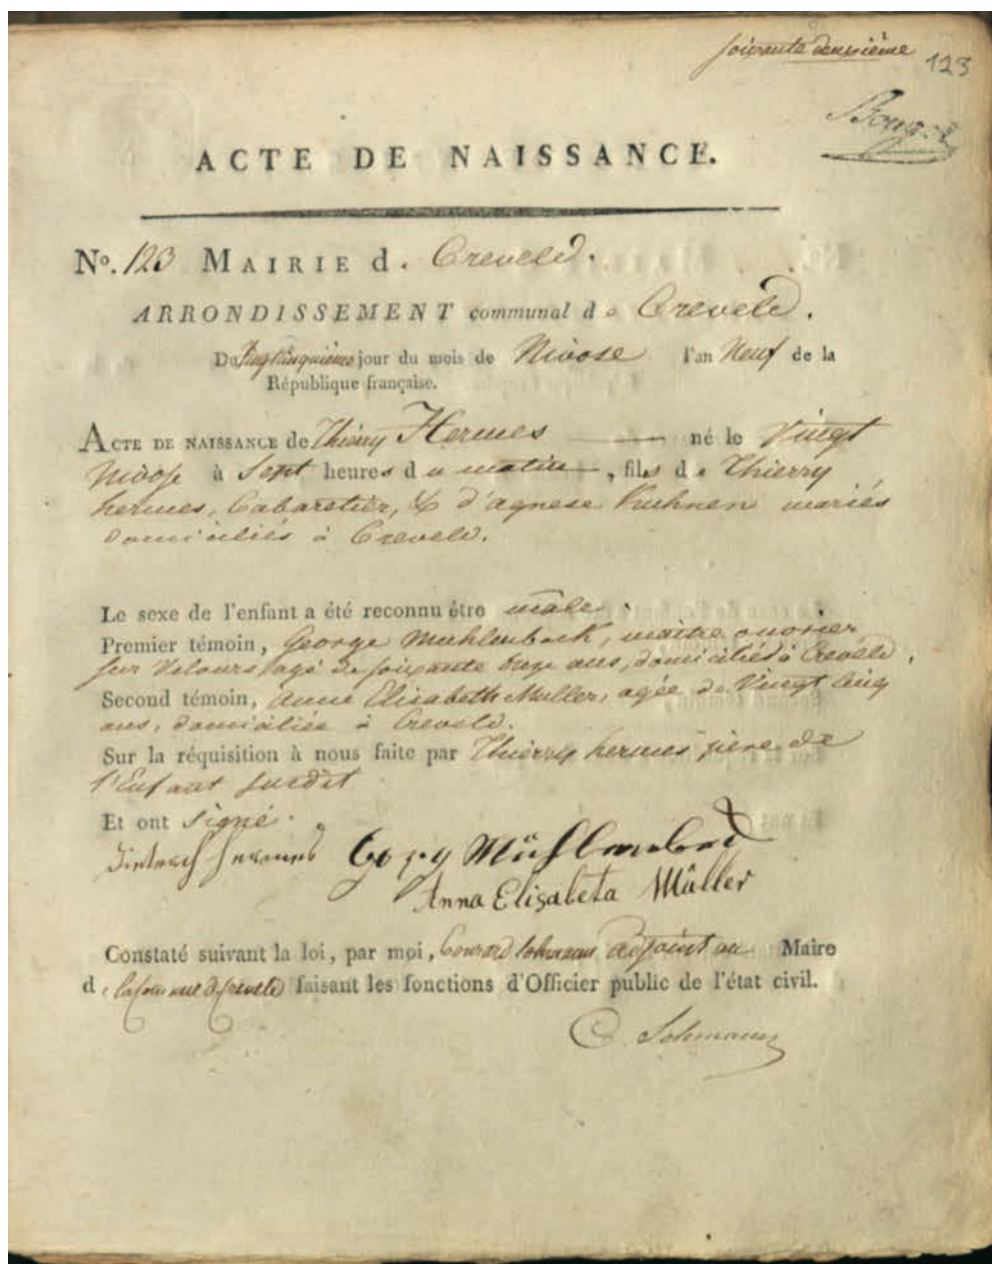 soixante deuxième
123
ACTE DE NAISSANCE.
Nº. 123 MAIRIE d. Creveld.
ARRONDISSEMENT communal de Creveld.
Du Vingt cinquième jour du mois de Nivose l'an Neuf de la
République française.
ACTE DE NAISSANCE de Thierry Hermes né le Vingt
Nivose à Sept heures du matin, fils de Thierry
hermes, Cabaretier, & d'agnese Kuhnen mariés
domiciliés à Creveld.
Le sexe de l'enfant a été reconnu être mâle.
Premier témoin, George Muhlenbock, maitre ouvrier
sur Velours, agé de soixante onze ans, domicilié à Creveld.
Second témoin, Anne Elisabeth Muller, agée de Vingt Cinq
ans, domiciliée à Creveld.
Sur la réquisition à nous faite par Thierry hermes père de
l'Enfant susdit
Et ont Signé.
Dieterich hermes
Anna Elisabeta Müller
Constaté suivant la loi, par moi, Conrad Sohmann adjoint au Maire
de la Commune de Creveld faisant les fonctions d'Officier public de l'état civil.
C. Sohmann